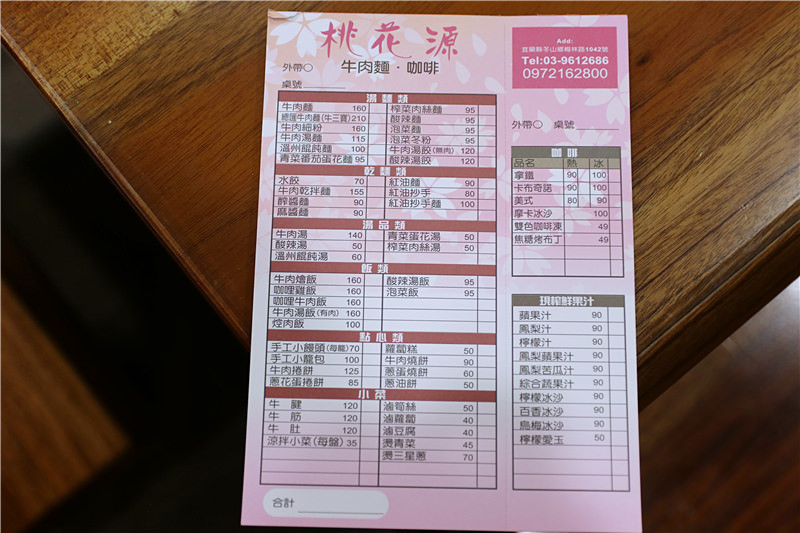 桃花源
牛肉麵．咖啡
外帶○
桌號
湯麵類
牛肉麵 160 榨菜肉絲麵 95
總匯牛肉麵(牛三寶) 210 酸辣麵 95
牛肉細粉 160 泡菜麵 95
牛肉湯麵 115 泡菜冬粉 95
溫州餛飩麵 100 牛肉湯餃(無肉) 120
青菜番茄蛋花麵 95 酸辣湯餃 120
乾麵類
水餃 70 紅油麵 90
牛肉乾拌麵 155 紅油抄手 80
醡醬麵 90 紅油抄手麵 100
麻醬麵 90
湯品類
牛肉湯 140 青菜蛋花湯 50
酸辣湯 50 榨菜肉絲湯 50
溫州餛飩湯 60
飯類
牛肉燴飯 160 酸辣湯飯 95
咖哩雞飯 160 泡菜飯 95
咖哩牛肉飯 160
牛肉湯飯(有肉) 160
焢肉飯 100
點心類
手工小饅頭(每籠) 70 蘿蔔糕 50
手工小籠包 100 牛肉燒餅 90
牛肉捲餅 125 蔥蛋燒餅 60
蔥花蛋捲餅 85 蔥油餅 50
小菜
牛腱 120 滷筍絲 50
牛筋 120 滷蘿蔔 40
牛肚 120 滷豆腐 40
涼拌小菜(每盤) 35 燙青菜 45
燙三星蔥 70
合計
Add:
宜蘭縣冬山鄉梅林路1042號
Tel:03-9612686
0972162800
外帶○ 桌號
咖啡
品名 熱 冰
拿鐵 90 100
卡布奇諾 90 100
美式 80 90
摩卡冰沙 100
雙色咖啡凍 49
焦糖烤布丁 49
現榨鮮果汁
蘋果汁 90
鳳梨汁 90
檸檬汁 90
鳳梨蘋果汁 90
鳳梨苦瓜汁 90
綜合蔬果汁 90
檸檬冰沙 90
百香冰沙 90
烏梅冰沙 90
檸檬愛玉 50